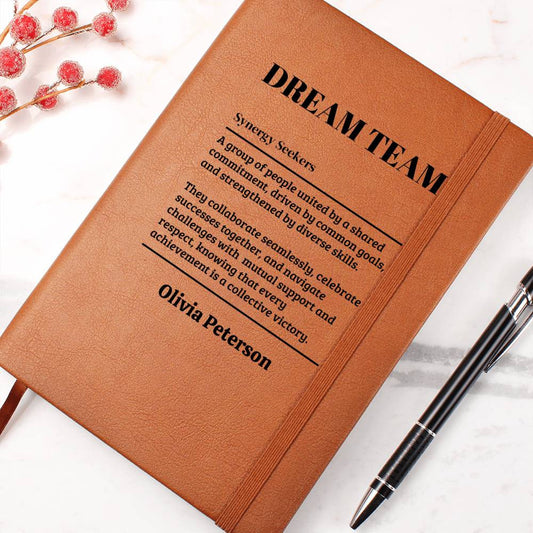 DREAM TEAM
Synergy Seekers
A group of people united by a shared
commitment, driven by common goals,
and strengthened by diverse skills.
They collaborate seamlessly, celebrate
successes together, and navigate
challenges with mutual support and
respect, knowing that every
achievement is a collective victory.
Olivia Peterson